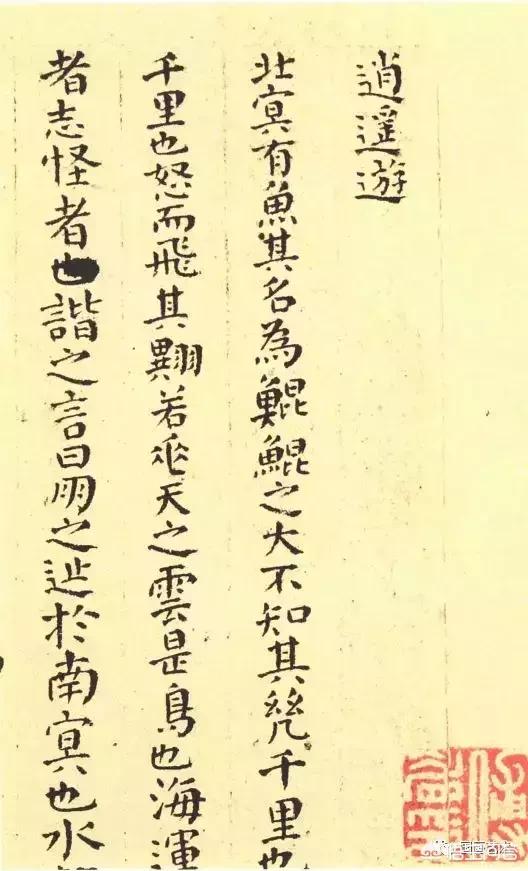 逍遥遊
北冥有魚其名為鯤鯤之大不知其幾千里也
千里也怒而飛其翼若垂天之雲是鳥也海運
者志怪者也諧之言曰鵬之徙於南冥也水